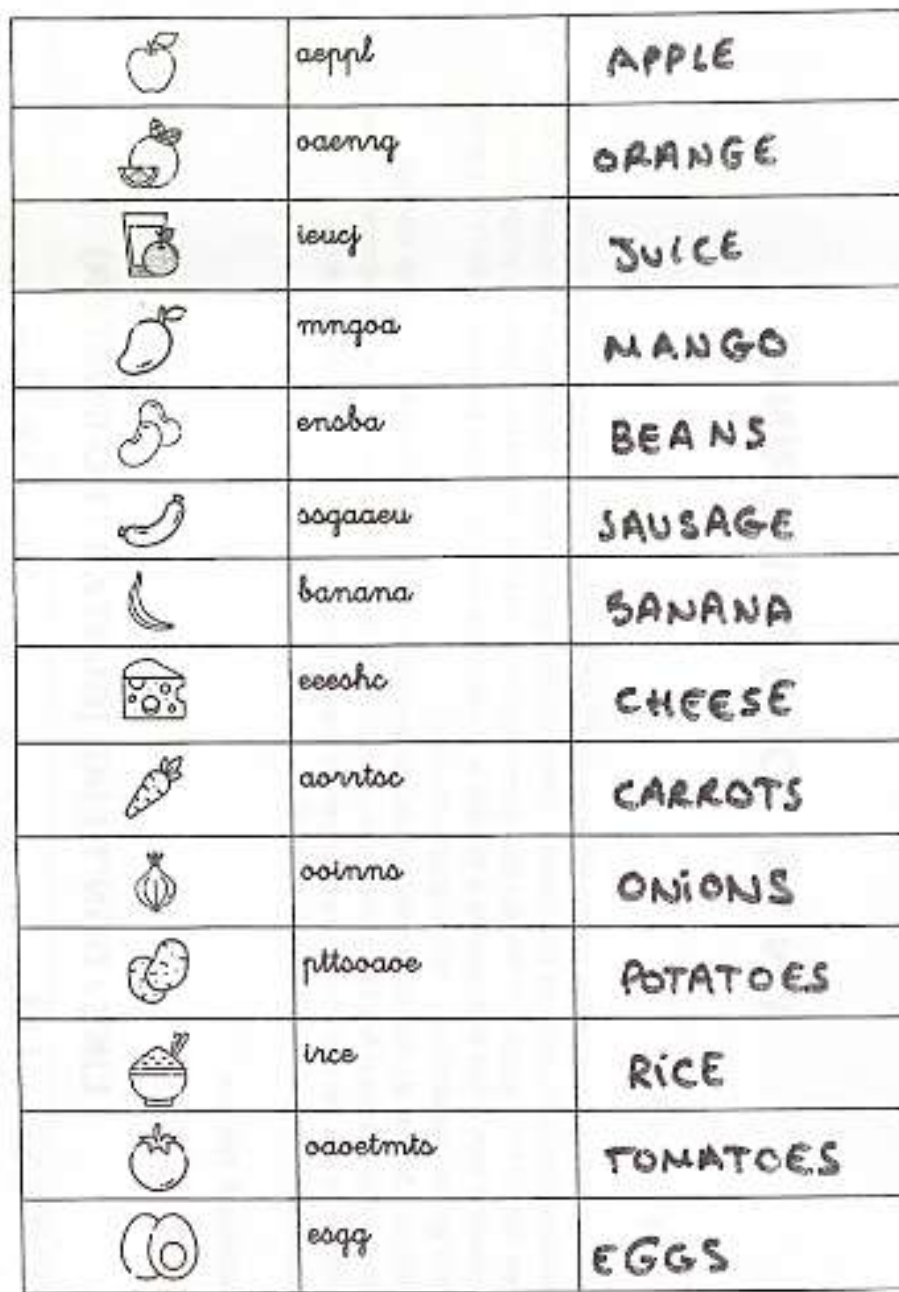 aeppl APPLE
oaenrg ORANGE
ieucj JUICE
mngoa MANGO
ensba BEANS
ssgaaeu SAUSAGE
banana BANANA
eeeshc CHEESE
aorrtsc CARROTS
ooinns ONiONS
pttsoaoe POTATOES
irce RiCE
oaoetmts TOMATOES
esgg EGGS